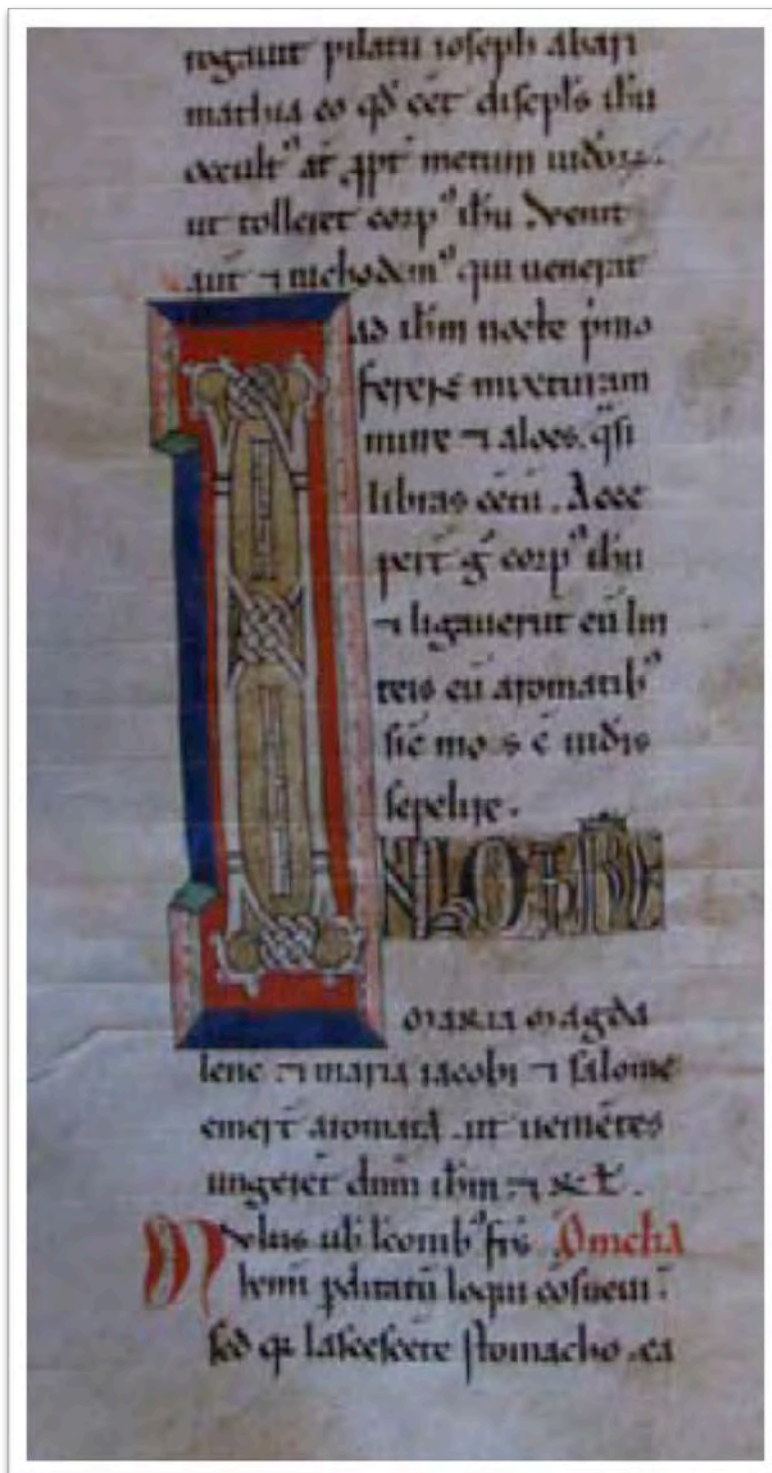 rogauit pilatū ioseph abari
mathia eo qđ eēt discipl's ih̄u
occult⁹ at̄ ꝓpt̄ metum iudeoꝝ.
ut tolleret corp⁹ ih̄u. Venit
aut̄ ⁊ nichodem⁹ qui uenerat
ad ih̄m nocte p̄mo
ferens mixturam
mirre ⁊ aloes. q̄si
libras centū. Acce
per̄t g̊ corp⁹ ih̄u
⁊ ligauerūt eū lin
teis cū aromatib⁹
sic̄ mos ē iudeis
sepelire.
IN ILLO TP̄RE
maria magda
lene ⁊ maria iacobi ⁊ salome
emer̄t aromata. ut uenientes
ungerēt dn̄m ih̄m ⁊
Omelia
loqui
sed stomacho